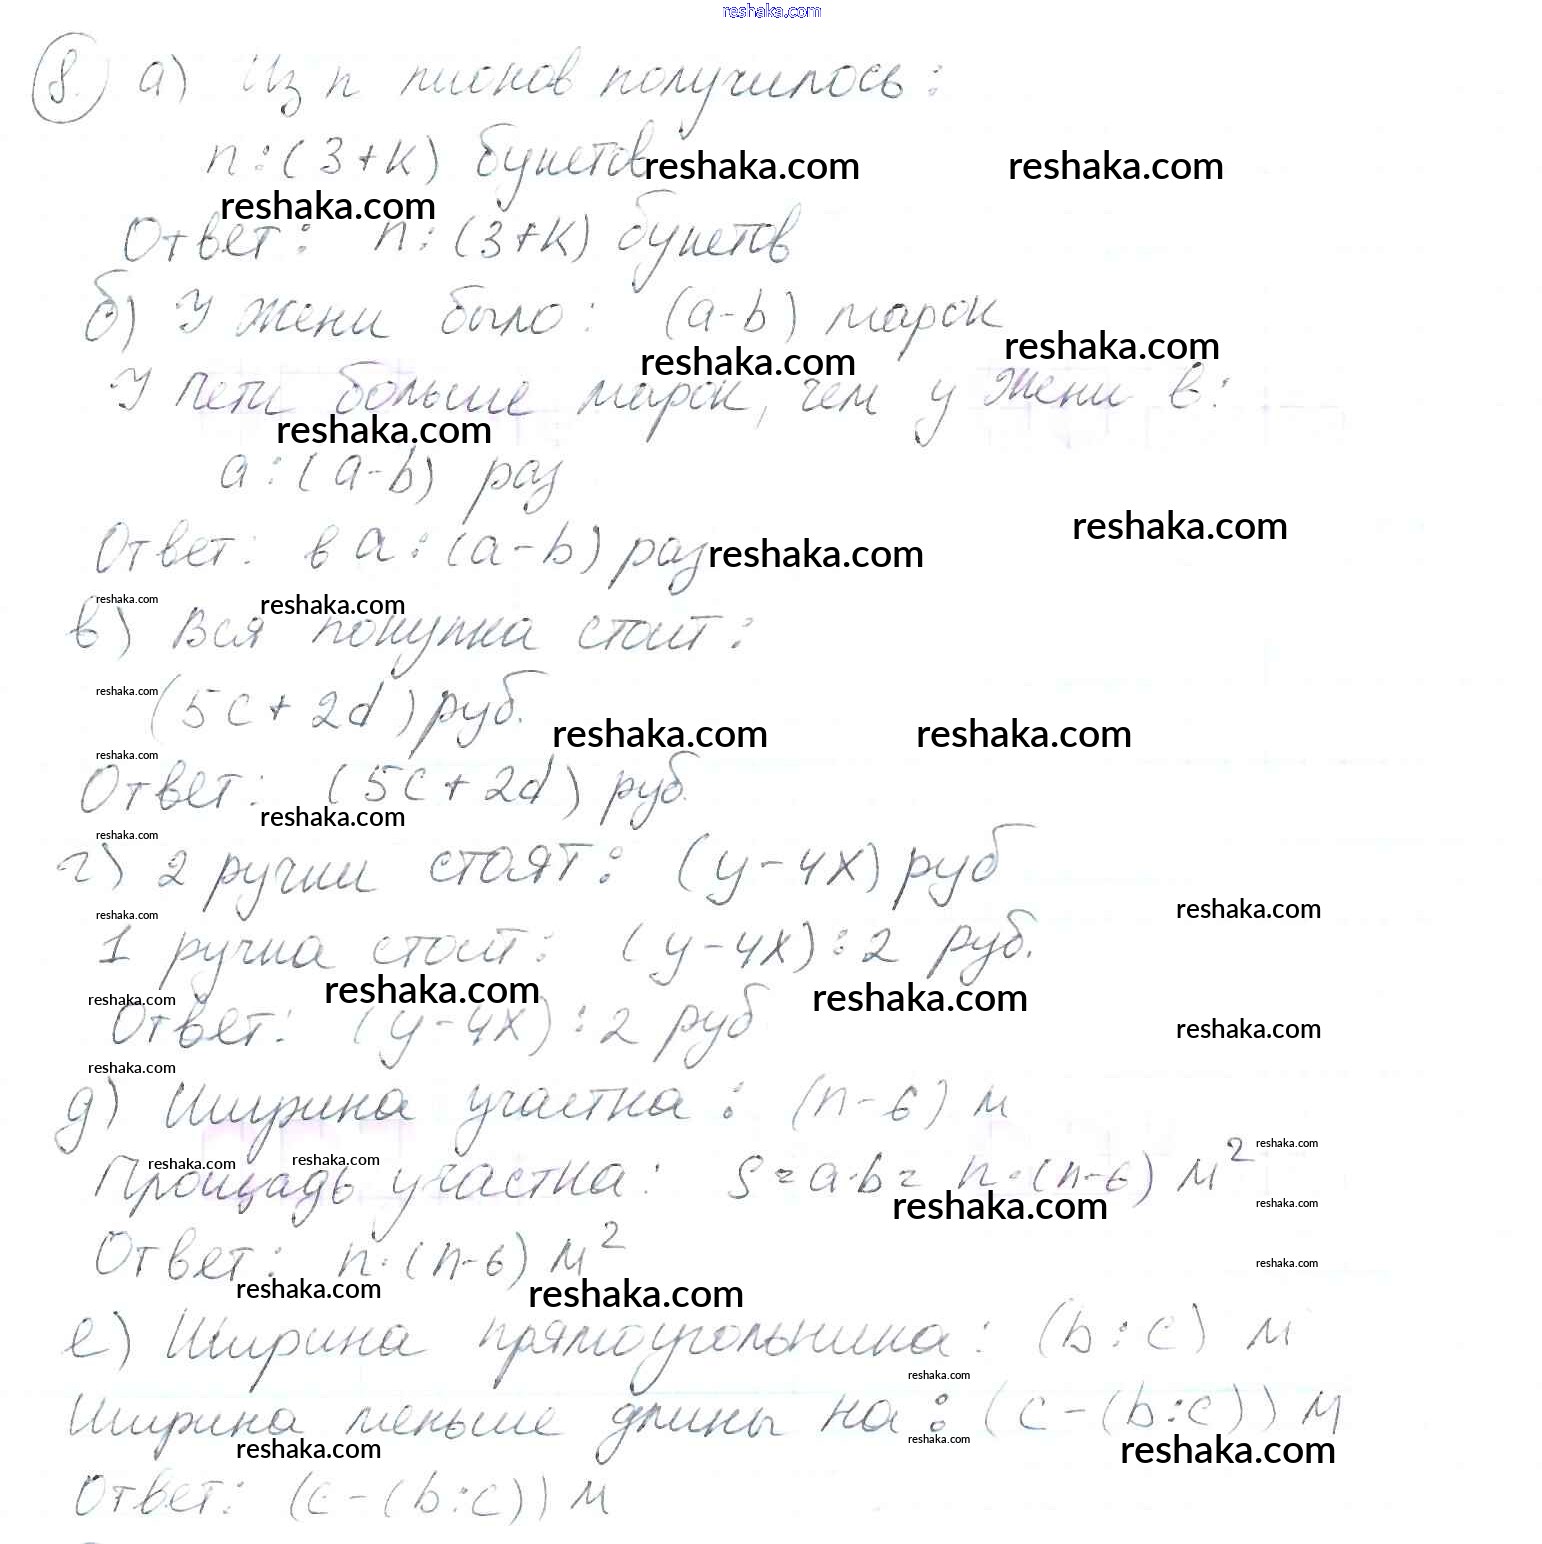 reshaka.com
8. а) Из n пионов получилось:
n : (3+k) букетов reshaka.com reshaka.com
reshaka.com
Ответ: n : (3+k) букетов
б) У Жени было: (a-b) марок
reshaka.com reshaka.com
У Пети больше марок, чем у Жени в:
reshaka.com
a : (a-b) раз
reshaka.com
Ответ: в a : (a-b) раз reshaka.com
reshaka.com reshaka.com
в) Вся покупка стоит:
reshaka.com
(5c + 2d) руб.
reshaka.com reshaka.com
reshaka.com
Ответ: (5c + 2d) руб.
reshaka.com
reshaka.com
г) 2 ручки стоят: (y-4x) руб
reshaka.com reshaka.com
1 ручка стоит: (y-4x) : 2 руб.
reshaka.com reshaka.com reshaka.com
Ответ: (y-4x) : 2 руб
reshaka.com
reshaka.com
д) Ширина участка: (n-6) м
reshaka.com reshaka.com reshaka.com
Площадь участка: S = a·b = n·(n-6) м²
reshaka.com reshaka.com
Ответ: n·(n-6) м²
reshaka.com
reshaka.com reshaka.com
е) Ширина прямоугольника: (b:c) м
reshaka.com
Ширина меньше длины на: (c-(b:c)) м
reshaka.com reshaka.com reshaka.com
Ответ: (c-(b:c)) м